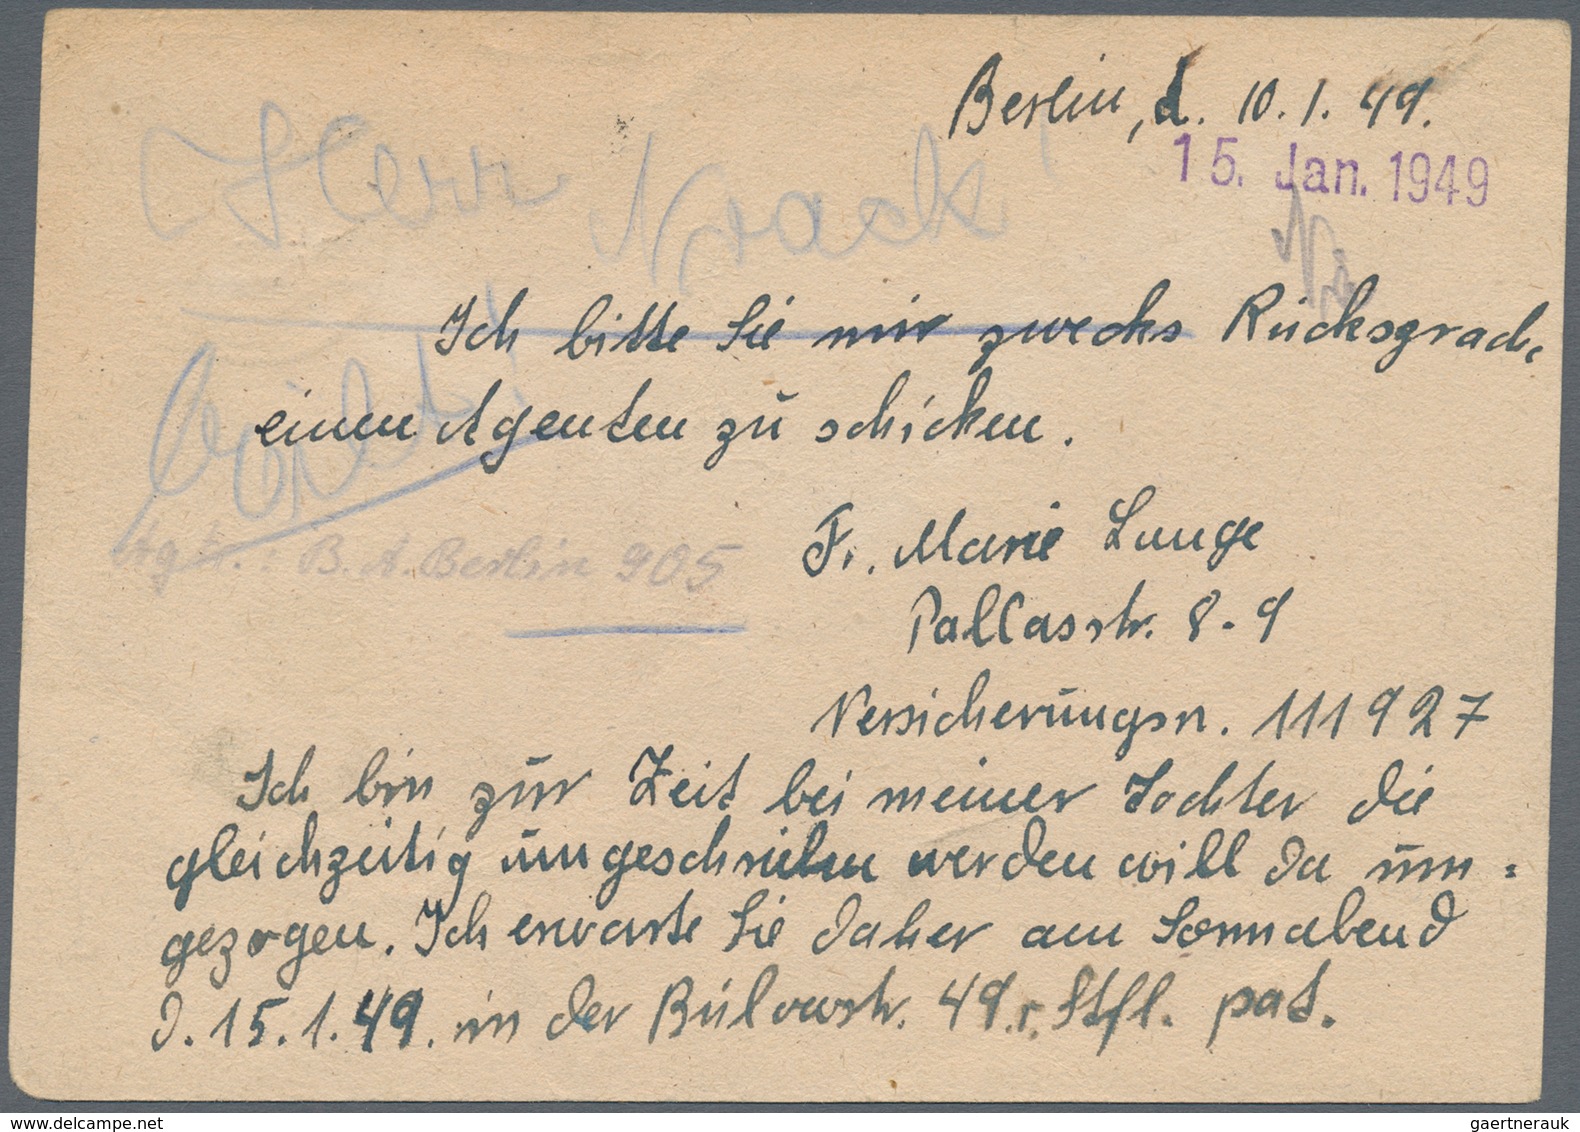 Berlin, d. 10.1.49.
15. Jan. 1949
Herr Noack
Ich bitte Sie mir zwecks Rücksprach.
einen Agenten zu schicken.
Agtr. B.A. Berlin 905
Fr. Marie Lange
Pallasstr. 8-9
Versicherungsn. 111927
Ich bin zur Zeit bei meiner Tochter die
gleichzeitig umgeschrieben werden will da um=
gezogen. Ich erwarte Sie daher am Sonnabend
d. 15.1.49. in der Bülowstr. 49. r. Stfl. pat.
gaertnerauk@delcampe.net